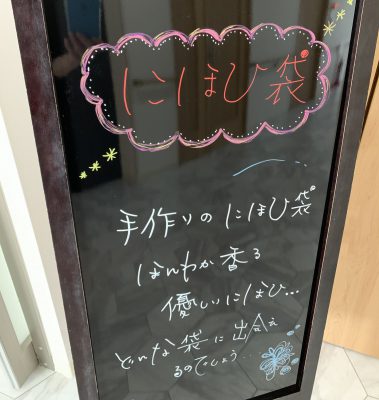 にほひ袋
手作りの にほひ袋
ほんわか香る
優しいにほひ...
どんな袋に出会え
るのでしょう...